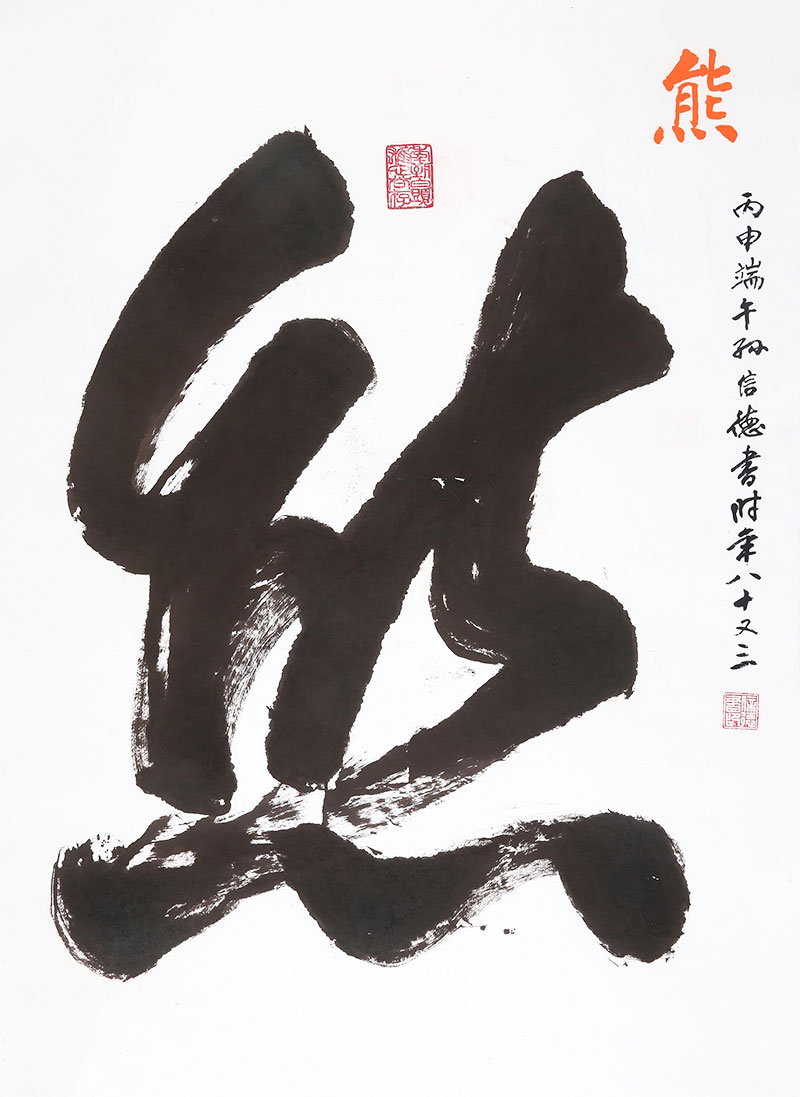 熊
熊
丙申端午孙信德书时年八十又三